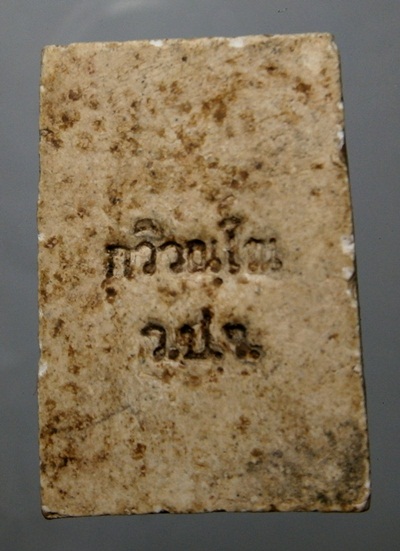 กวิวณฺโณ
ว.ป.จ.